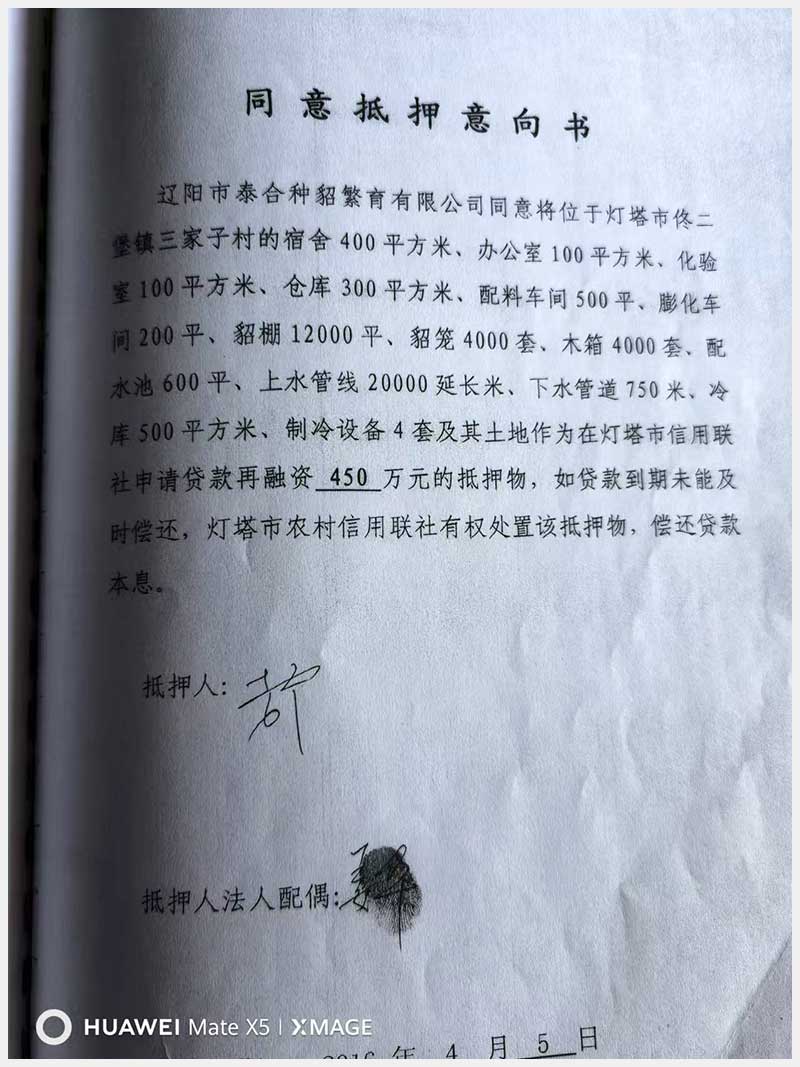 同意抵押意向书
辽阳市泰合种貂繁育有限公司同意将位于灯塔市佟二
堡镇三家子村的宿舍 400 平方米、办公室 100 平方米、化验
室 100 平方米、仓库 300 平方米、配料车间 500 平、膨化车
间 200 平、貂棚 12000 平、貂笼 4000 套、木箱 4000 套、配
水池 600 平、上水管线 20000 延长米、下水管道 750 米、冷
库 500 平方米、制冷设备 4 套及其土地作为在灯塔市信用联
社申请贷款再融资 450 万元的抵押物，如贷款到期未能及
时偿还，灯塔市农村信用联社有权处置该抵押物，偿还贷款
本息。
抵押人：
抵押人法人配偶：
2016 年 4 月 5 日
HUAWEI Mate X5 | XMAGE